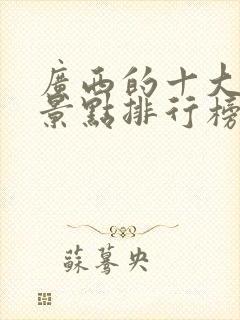 廣西的十大
景點排行榜
蘇驀央